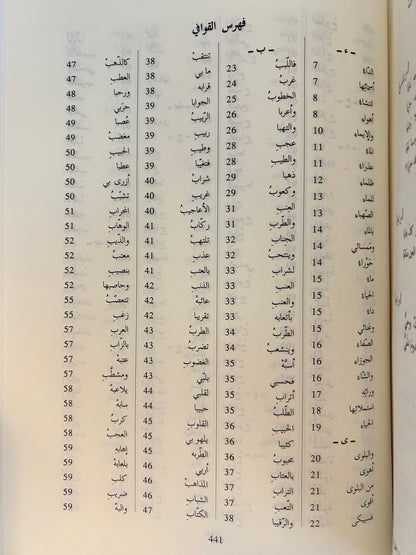 فهرس القوافي
- ء -
الدّاءُ 7
7
8
أهواء 8
والإيماء 10
الماءُ 11
عذراءُ 11
ظلماء 12
للماء 13
الصّهباء 13
بالماء 14
ومَسائي 14
حَوْراءُ 14
ماءُ 15
الحياءُ 15
داءُ 15
وغنائي 15
الصّفاء 16
الجوزاء 16
والشّاء 16
ورائِه 17
استملائِها 18
الحياءُ 19
- ى -
والبلوى 20
أهوى 21
من البلوى 21
أقوى 21
22
- ب -
فاللّببُ 23
غربُ 24
الخطوبُ 25
وأعربا 26
والتهبا 26
عجب 28
والطيب 28
ذهبا 29
وكعوب 29
العنبِ 31
والطّربِ 31
الجناب 32
وينتحبُ 32
لشراب 33
العنب 33
والعنب 33
33
الطّربُ 34
وينشعبُ 34
35
فحسبي 35
أتراب 35
الطّلبُ 35
الحبيب 36
كثيبا 36
محبوبُ 36
بالعتاب 37
التراب 37
التّعب 37
والرّقيبا 38
تنتقبُ 38
ما بي 38
قرابه 38
الجوابا 39
الرّبيبُ 39
ربيب 39
وطيب 39
39
شراب 40
غريب 40
الأعاجيب 40
ركابُ 41
تلتهبُ 41
عذب 41
بالعتب 41
الذنب 42
عائبهُ 42
تقريبا 42
الطربُ 43
تضربُ 43
الغضوب 43
43
لقلبي 44
حبيبا 44
القلوب 44
يلهو بي 44
الطّربه 44
أربي 45
المذاهب 46
الشّباب 46
الكتّاب 47
كالذّهب 47
العطب 47
ورحبا 48
حربي 48
غُصبا 49
مغضبُ 49
الحبيب 50
عطبا 50
أزرى بي 50
50
المحراب 51
الوهّاب 51
والذّيب 52
معتب 52
بنصيب 52
وحاصبها 52
تتعصّبُ 55
زغب 55
العرب 57
57
عتبهْ 57
57
يلاعبهُ 58
سابهْ 58
كربُ 58
العجبُ 58
إهابِه 59
بلعابهْ 59
كلب 59
ضريب 59
59
441